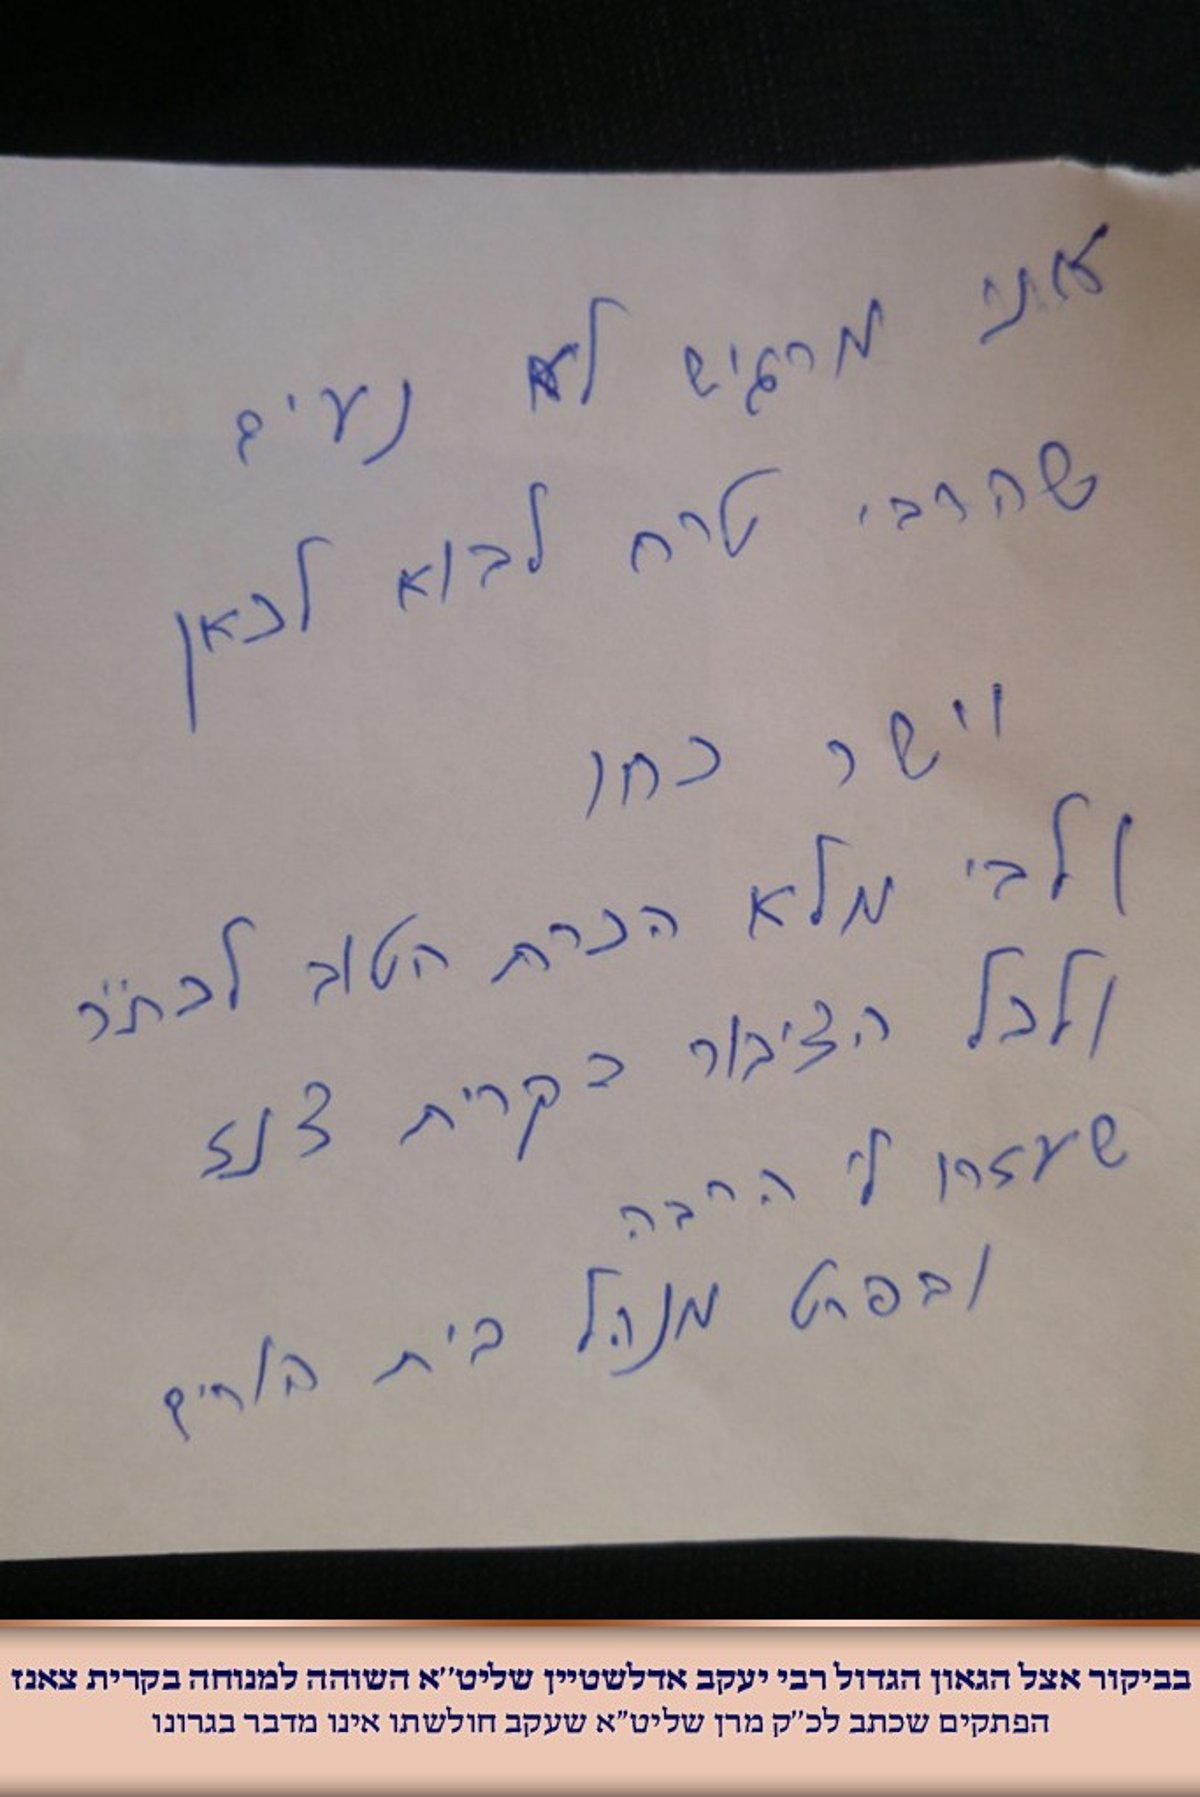 אני מרגיש לא נעים
שהרבי טרח לבוא לכאן
וישר כחו
ולבי מלא הכרת הטוב לכת"ר
ולכל הציבור בקרית צנז
שעזרו לי הרבה
ובפרט מנהל בית הורים
בביקור אצל הגאון הגדול רבי יעקב אדלשטיין שליט''א השוהה למנוחה בקרית צאנז
הפתקים שכתב לכ"ק מרן שליט"א שעקב חולשתו אינו מדבר בגרונו